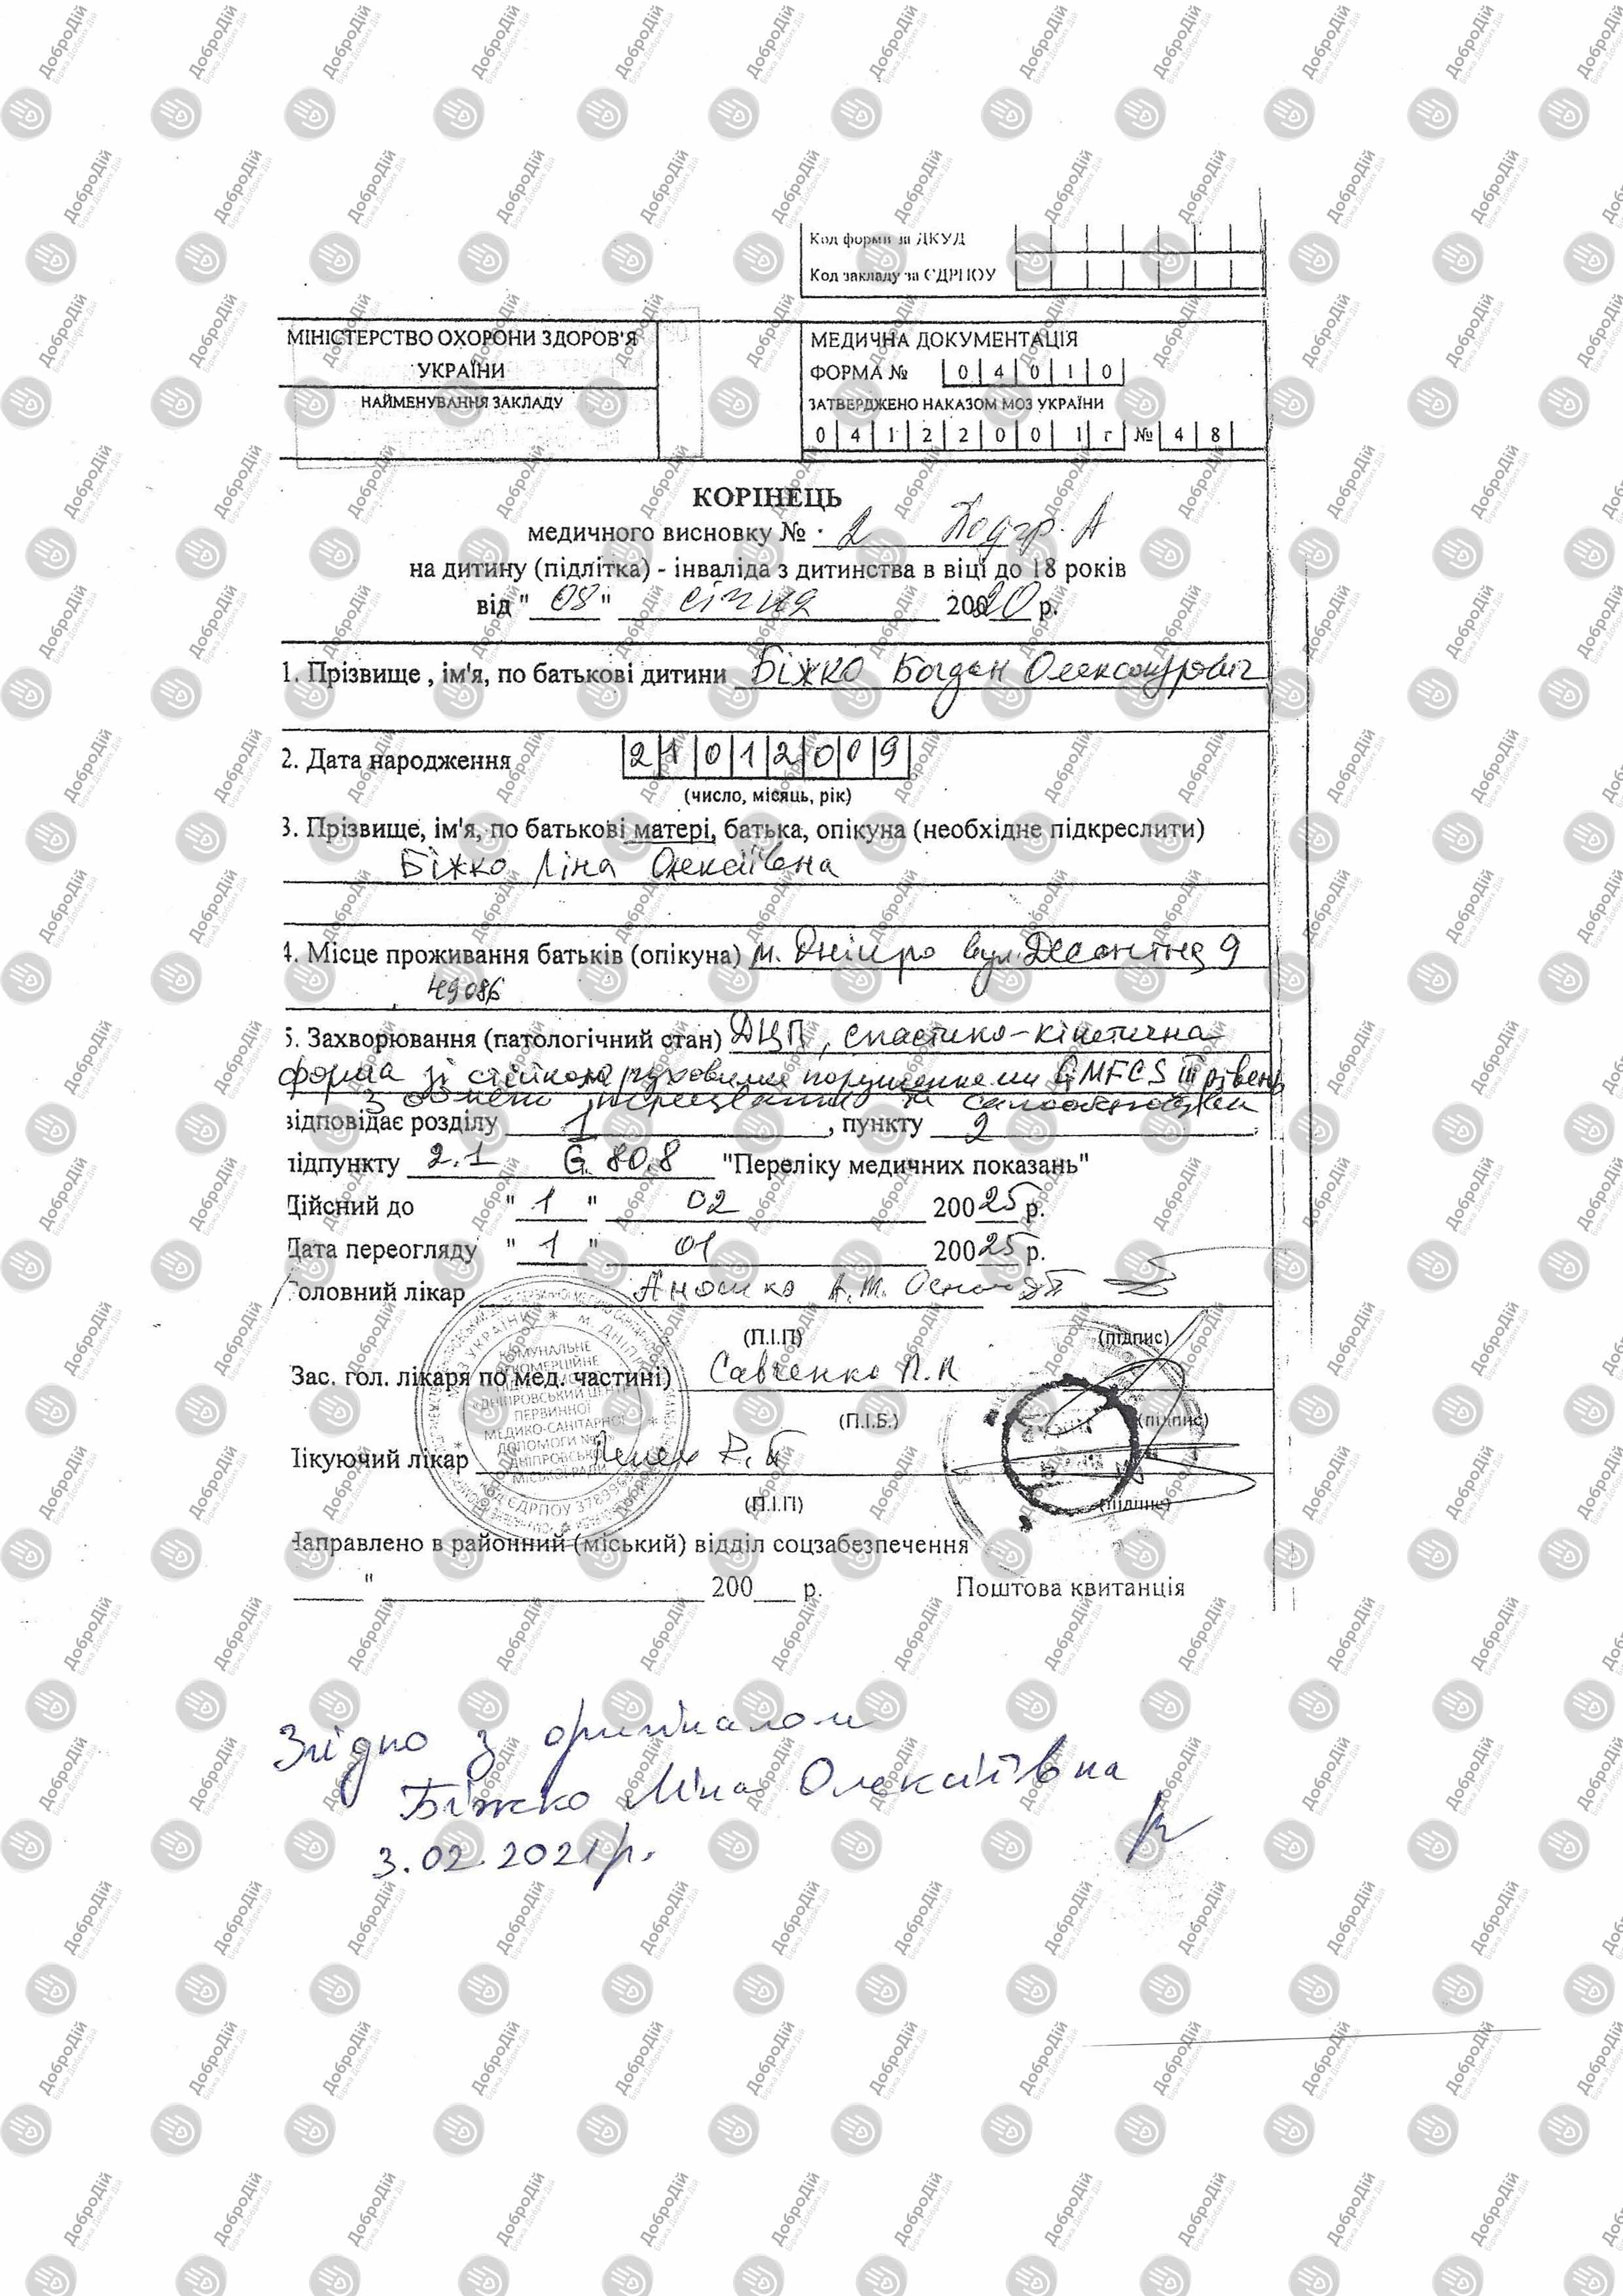 Код форми за ДКУД
Код закладу за ЄДРПОУ
МІНІСТЕРСТВО ОХОРОНИ ЗДОРОВ'Я
УКРАЇНИ
НАЙМЕНУВАННЯ ЗАКЛАДУ
МЕДИЧНА ДОКУМЕНТАЦІЯ
ФОРМА № 0 4 0 1 0
ЗАТВЕРДЖЕНО НАКАЗОМ МОЗ УКРАЇНИ
0 4 1 2 2 0 0 1 г № 4 8
КОРІНЕЦЬ
медичного висновку № 2 Подгр. А
на дитину (підлітка) - інваліда з дитинства в віці до 18 років
від "08" січня 2020 р.
1. Прізвище , ім'я, по батькові дитини Біжко Богдан Олександрович
2. Дата народження 2 1 0 1 2 0 0 9
(число, місяць, рік)
3. Прізвище, ім'я, по батькові матері, батька, опікуна (необхідне підкреслити)
Біжко Ліна Олексіївна
4. Місце проживання батьків (опікуна) м. Дніпро вул. Десантна 9
49086
5. Захворювання (патологічний стан) ДЦП, спастико-кінетична
форма зі стійкими руховими порушеннями GMFCS III рівень
відповідає розділу 1, пункту 2
підпункту 2.1 G 80.8 "Переліку медичних показань"
Дійсний до "1" 02 200 25 р.
Дата переогляду "1" 01 200 25 р.
Головний лікар
(П.І.П) (підпис)
Зас. гол. лікаря по мед. частині) Савченко Л.Л
(П.І.Б.) (підпис)
Лікуючий лікар
(П.І.П) (підпис)
КОМУНАЛЬНЕ
НЕКОМЕРЦІЙНЕ
«ДНІПРОВСЬКИЙ ЦЕНТР
ПЕРВИННОЇ
МЕДИКО-САНІТАРНОЇ
ДОПОМОГИ №
ДНІПРОВСЬКОЇ
МІСЬКОЇ РАДИ
Направлено в районний (міський) відділ соцзабезпечення
" 200 р. Поштова квитанція
Згідно з оригіналом
Біжко Ліна Олексіївна
3.02.2021р.
ДоброДій
Біржа Добрих Дій